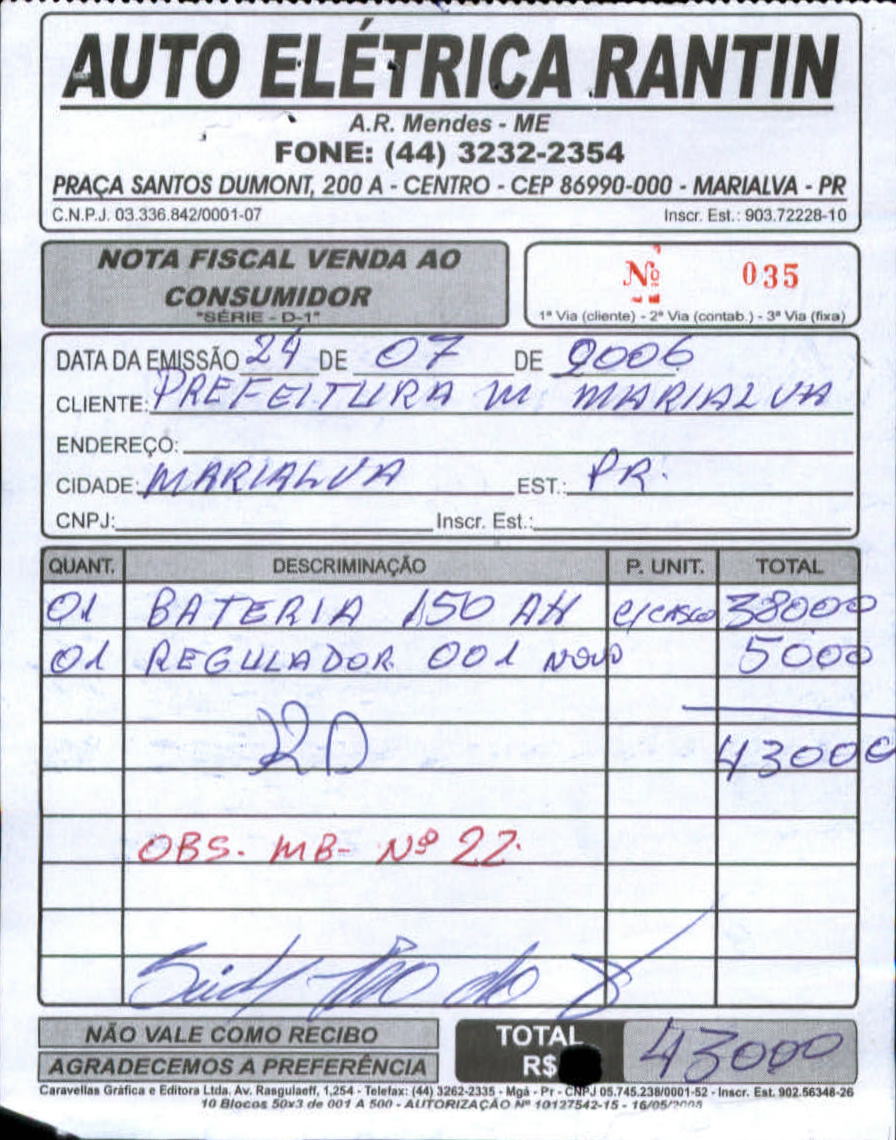 AUTO ELÉTRICA RANTIN
A.R. Mendes - ME
FONE: (44) 3232-2354
PRAÇA SANTOS DUMONT, 200 A - CENTRO - CEP 86990-000 - MARIALVA - PR
C.N.P.J. 03.336.842/0001-07 Inscr. Est.: 903.72228-10
NOTA FISCAL VENDA AO
CONSUMIDOR
"SÉRIE - D-1"
Nº 035
1ª Via (cliente) - 2ª Via (contab.) - 3ª Via (fixa)
DATA DA EMISSÃO 24 DE 07 DE 2006
CLIENTE: PREFEITURA M. MARIALVA
ENDEREÇO:
CIDADE: MARIALVA EST.: PR.
CNPJ: Inscr. Est.:
QUANT. DESCRIMINAÇÃO P. UNIT. TOTAL
01 BATERIA 150 AH c/casco 38000
01 REGULADOR 001 NOVO 5000
43000
OBS. MB- Nº 22.
NÃO VALE COMO RECIBO
AGRADECEMOS A PREFERÊNCIA
TOTAL
R$ 43000
Caravellas Gráfica e Editora Ltda. Av. Rasgulaeff, 1,254 - Telefax: (44) 3262-2335 - Mgá - Pr - CNPJ 05.745.238/0001-52 - Inscr. Est. 902.56348-26
10 Blocos 50x3 de 001 A 500 - AUTORIZAÇÃO Nº 10127542-15 - 16/05/2005